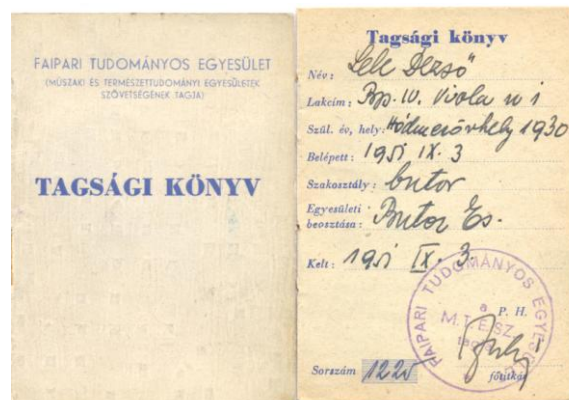 FAIPARI TUDOMÁNYOS EGYESÜLET
(MŰSZAKI ÉS TERMÉSZETTUDOMÁNYI EGYESÜLETEK
SZÖVETSÉGÉNEK TAGJA)
TAGSÁGI KÖNYV
Tagsági könyv
Név: Lele Dezső
Lakcím: Bp. IV. Viola u 1
Szül. év, hely: Hódmezővhely 1930
Belépett: 1951 IX. 3
Szakosztály: butor
Egyesületi
beosztása: Butor Es.
Kelt: 1951 IX. 3.
FAIPARI TUDOMÁNYOS EGYESÜLET
a P. H.
M.T.E.SZ.
főtitkár
Sorszám 1225